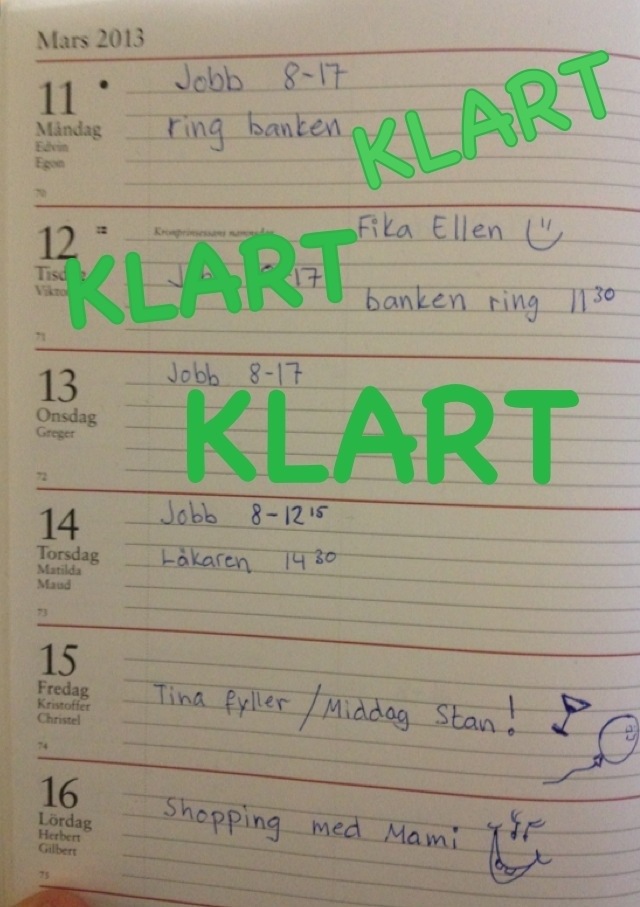 Mars 2013
11
Måndag
Edvin
Egon
70
Jobb 8-17
ring banken
KLART
12
Kronprinsessans namnsdag
Fika Ellen
17
banken ring 11 30
KLART
71
13
Onsdag
Greger
72
Jobb 8-17
KLART
14
Torsdag
Matilda
Maud
73
Jobb 8-12 15
Läkaren 14 30
15
Fredag
Kristoffer
Christel
74
Tina fyller / Middag Stan!
16
Lördag
Herbert
Gilbert
75
Shopping med Mami